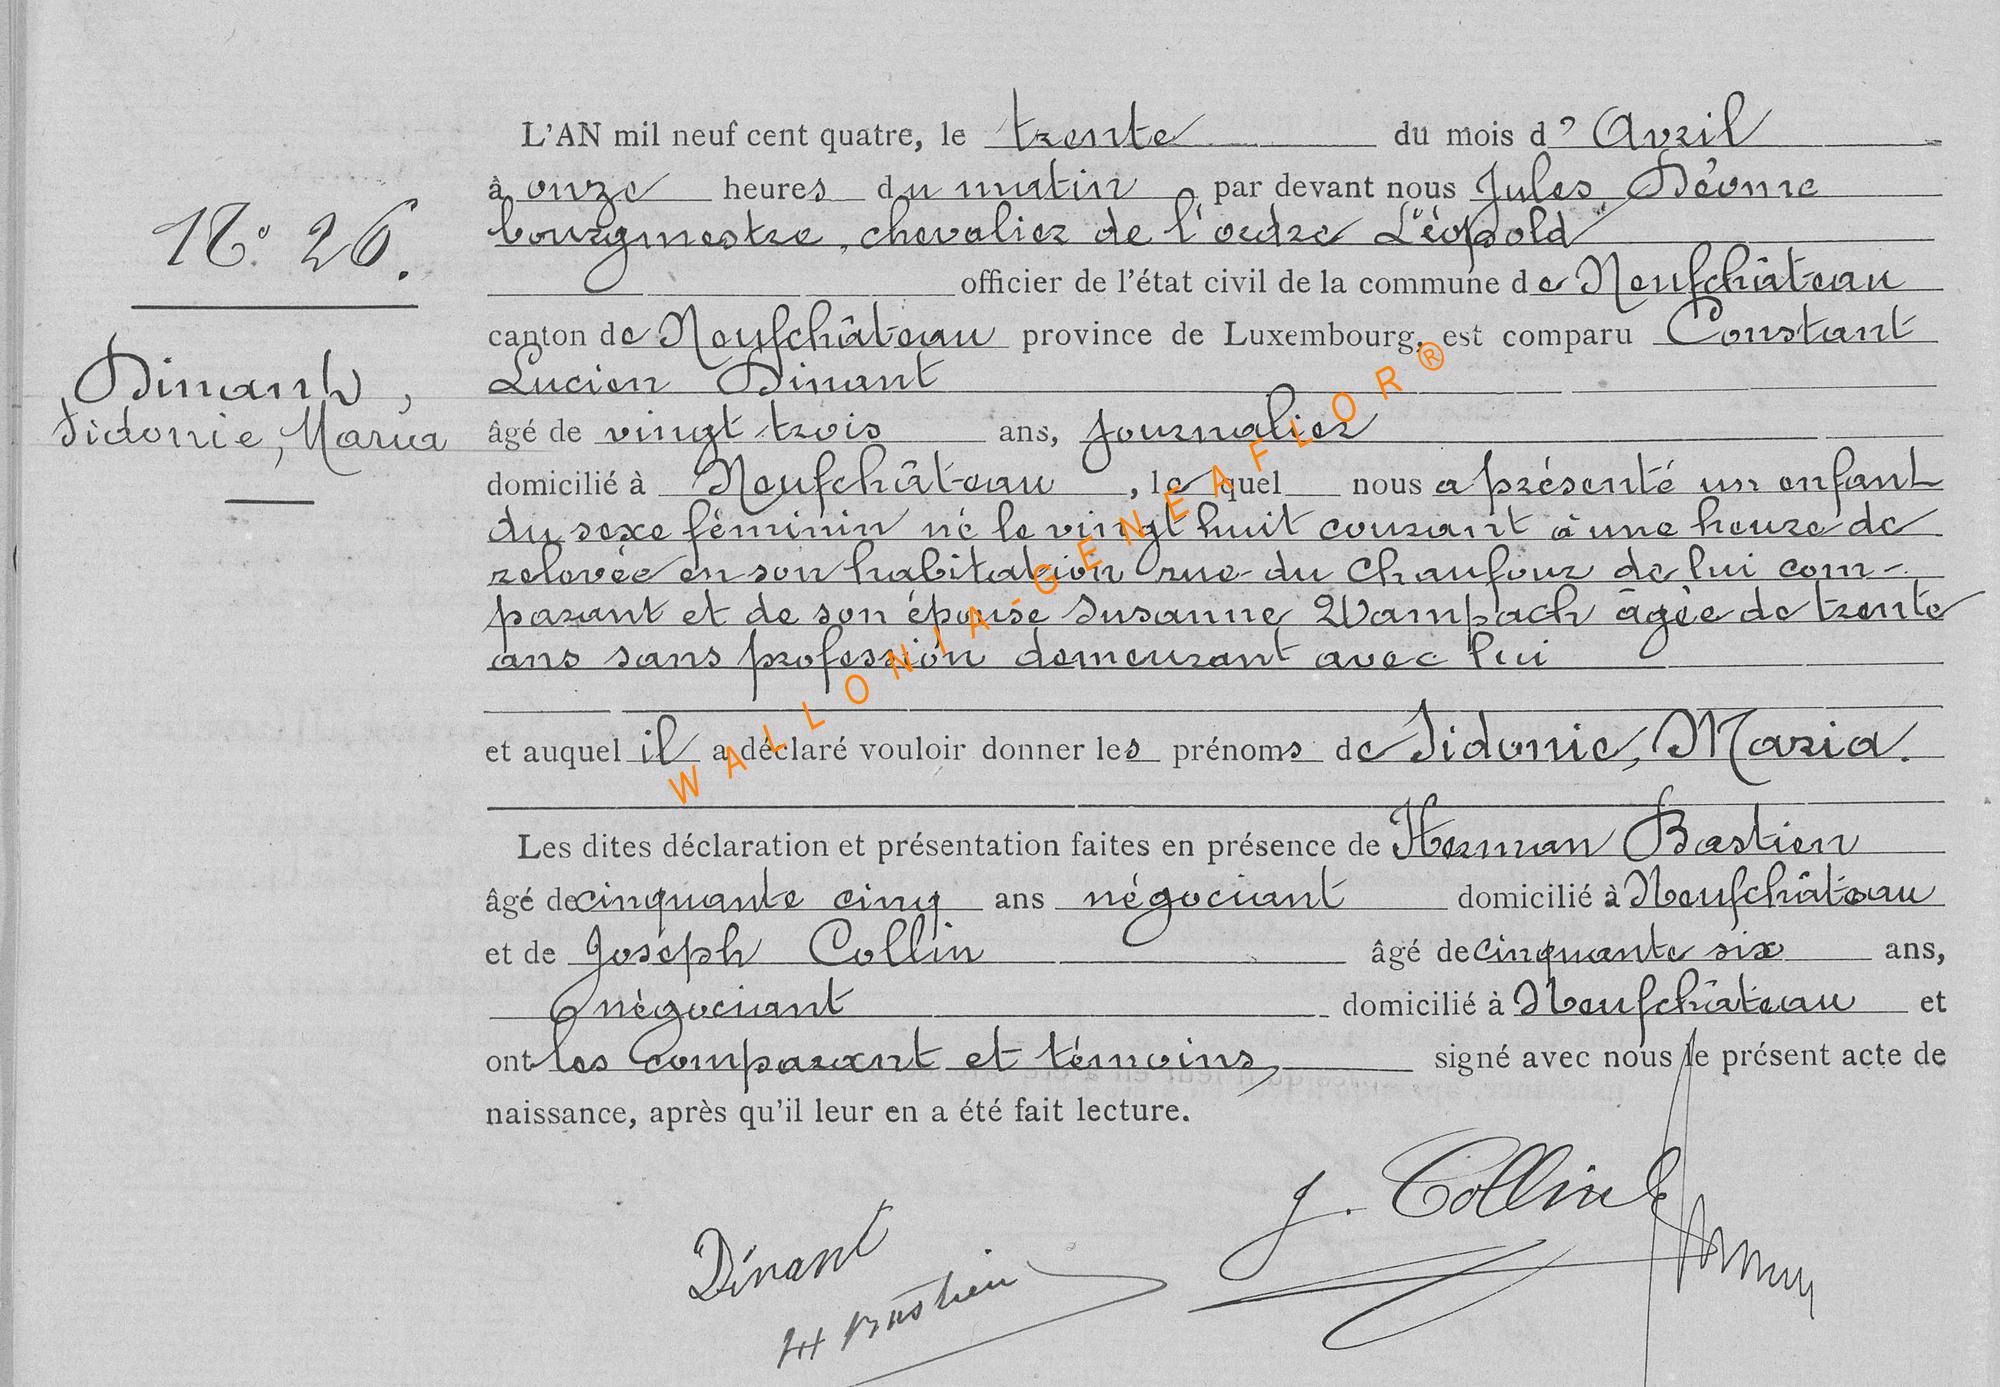 N° 26.
Dinant,
Sidonie, Maria
L'AN mil neuf cent quatre, le trente du mois d' Avril
à onze heures du matin par devant nous Jules
bourgmestre, chevalier de l'ordre Léopold
officier de l'état civil de la commune de Neufchâteau
canton de Neufchâteau province de Luxembourg, est comparu Constant
Lucien Dinant
âgé de vingt trois ans, journalier
domicilié à Neufchâteau, lequel nous a présenté un enfant
du sexe féminin né le vingt huit courant à une heure de
relevée en son habitation rue du Chaufour de lui com-
parant et de son épouse Susanne Wampach âgée de trente
ans sans profession demeurant avec lui
et auquel il a déclaré vouloir donner les prénoms de Sidonie, Maria.
Les dites déclaration et présentation faites en présence de Herman Bastien
âgé de cinquante cinq ans négociant domicilié à Neufchâteau
et de Joseph Collin âgé de cinquante six ans,
négociant domicilié à Neufchâteau et
ont les comparant et témoins signé avec nous le présent acte de
naissance, après qu'il leur en a été fait lecture.
Dinant
H Bastien
J. Collin
WALLONIA-GENEAFLOR®